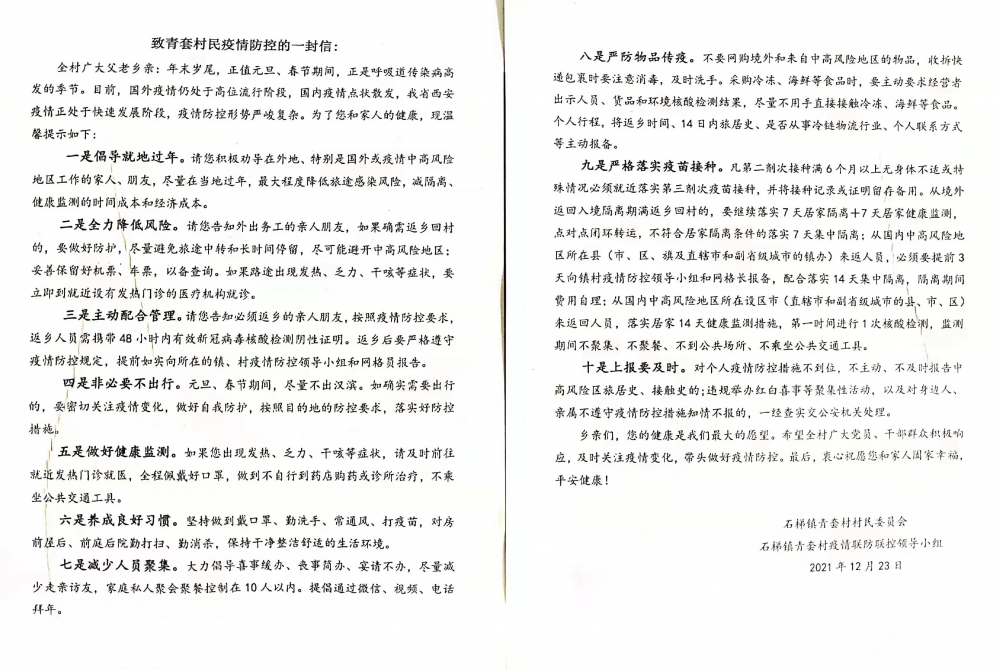 致青套村民疫情防控的一封信：
全村广大父老乡亲：年末岁尾，正值元旦、春节期间，正是呼吸道传染病高
发的季节。目前，国外疫情仍处于高位流行阶段，国内疫情点状散发，我省西安
疫情正处于快速发展阶段，疫情防控形势严峻复杂。为了您和家人的健康，现温
馨提示如下：
一是倡导就地过年。请您积极劝导在外地、特别是国外或疫情中高风险
地区工作的家人、朋友，尽量在当地过年，最大程度降低旅途感染风险，减隔离、
健康监测的时间成本和经济成本。
二是全力降低风险。请您告知外出务工的亲人朋友，如果确需返乡回村
的，要做好防护，尽量避免旅途中转和长时间停留，尽可能避开中高风险地区；
妥善保留好机票、车票，以备查询。如果路途出现发热、乏力、干咳等症状，要
立即到就近设有发热门诊的医疗机构就诊。
三是主动配合管理。请您告知必须返乡的亲人朋友，按照疫情防控要求，
返乡人员需携带48小时内有效新冠病毒核酸检测阴性证明。返乡后要严格遵守
疫情防控规定，提前如实向所在的镇、村疫情防控领导小组和网格员报告。
四是非必要不出行。元旦、春节期间，尽量不出汉滨。如确实需要出行
的，要密切关注疫情变化，做好自我防护，按照目的地的防控要求，落实好防控
措施。
五是做好健康监测。如果您出现发热、乏力、干咳等症状，请及时前往
就近发热门诊就医，全程佩戴好口罩，做到不自行到药店购药或诊所治疗，不乘
坐公共交通工具。
六是养成良好习惯。坚持做到戴口罩、勤洗手、常通风、打疫苗，对房
前屋后、前庭后院勤打扫、勤消杀，保持干净整洁舒适的生活环境。
七是减少人员聚集。大力倡导喜事缓办、丧事简办、宴请不办，尽量减
少走亲访友，家庭私人聚会聚餐控制在10人以内。提倡通过微信、视频、电话
拜年。
八是严防物品传疫。不要网购境外和来自中高风险地区的物品，收拆快
递包裹时要注意消毒，及时洗手。采购冷冻、海鲜等食品时，要主动要求经营者
出示人员、货品和环境核酸检测结果，尽量不用手直接接触冷冻、海鲜等食品。
个人行程，将返乡时间、14日内旅居史、是否从事冷链物流行业、个人联系方式
等主动报备。
九是严格落实疫苗接种。凡第二剂次接种满6个月以上无身体不适或特
殊情况必须就近落实第三剂次疫苗接种，并将接种记录或证明留存备用。从境外
返回入境隔离期满返乡回村的，要继续落实7天居家隔离+7天居家健康监测，
点对点闭环转运，不符合居家隔离条件的落实7天集中隔离；从国内中高风险地
区所在县（市、区、旗及直辖市和副省级城市的镇办）来返人员，必须要提前3
天向镇村疫情防控领导小组和网格长报备，配合落实14天集中隔离，隔离期间
费用自理；从国内中高风险地区所在设区市（直辖市和副省级城市的县、市、区）
来返回人员，落实居家14天健康监测措施，第一时间进行1次核酸检测，监测
期间不聚集、不聚餐、不到公共场所、不乘坐公共交通工具。
十是上报要及时。对个人疫情防控措施不到位，不主动、不及时报告中
高风险区旅居史、接触史的；违规举办红白喜事等聚集性活动，以及对身边人、
亲属不遵守疫情防控措施知情不报的，一经查实交公安机关处理。
乡亲们，您的健康是我们最大的愿望。希望全村广大党员、干部群众积极响
应，及时关注疫情变化，带头做好疫情防控。最后，衷心祝愿您和家人阖家幸福，
平安健康！
石梯镇青套村村民委员会
石梯镇青套村疫情联防联控领导小组
2021年12月23日